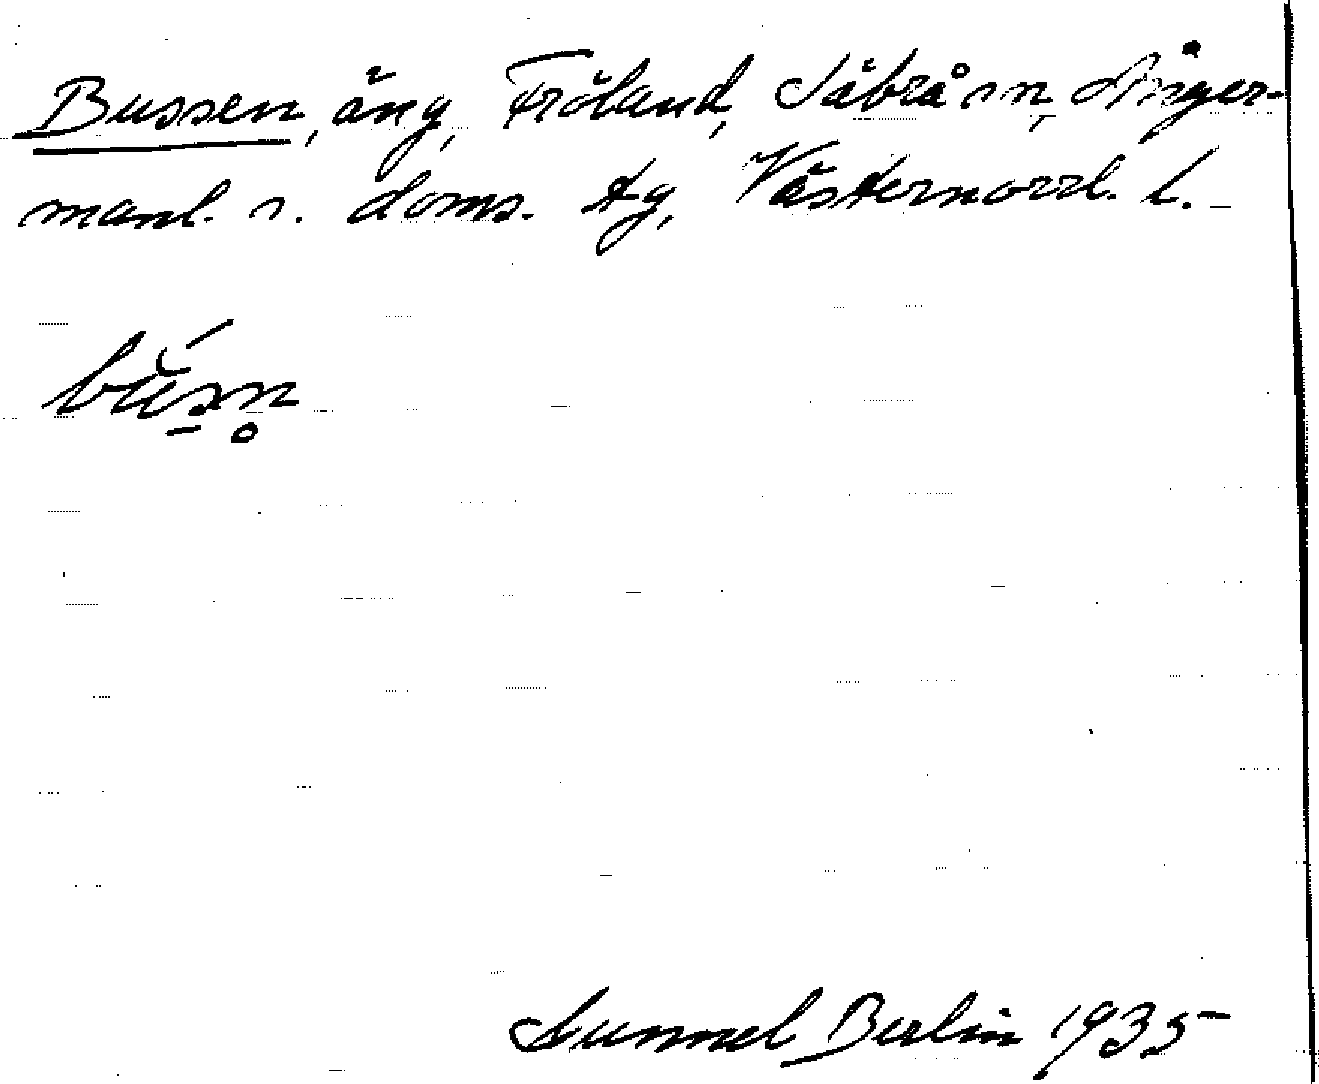 Bussen, äng, Fröland, Säbrå sn, Ånger-
manl. s. doms. tg, Västernorrl. l.
bús̱n̥
Gunnel Berlin 1935